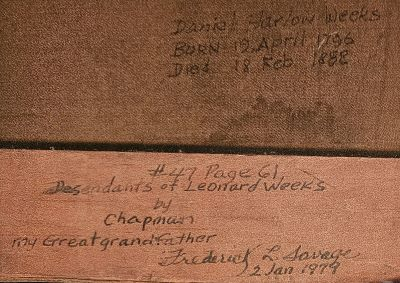 Daniel Farlow Weeks
BORN 12 April 1796
Died 18 Feb 1882
#47 Page 61,
Desendants of Leonard Weeks
by
Chapman
my Greatgrandfather
Frederick L. Savage
2 Jan 1979